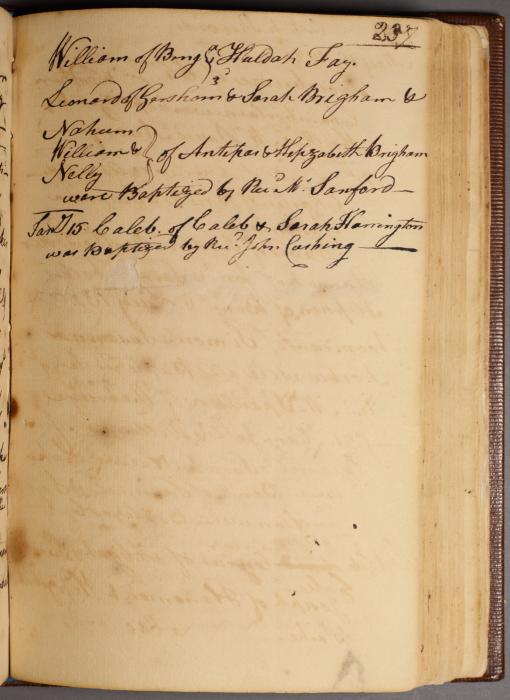 237
William of Benj. 3d & Huldah Fay.
Leonard of Gershom & Sarah Brigham &
Nahum
William & } of Antipas & Hepzabeth Brigham
Nelly
were Baptized by Revd Mr. Sanford —
Jany 15. Caleb. of Caleb & Sarah Harrington
was Baptized by Revd. John Cushing —